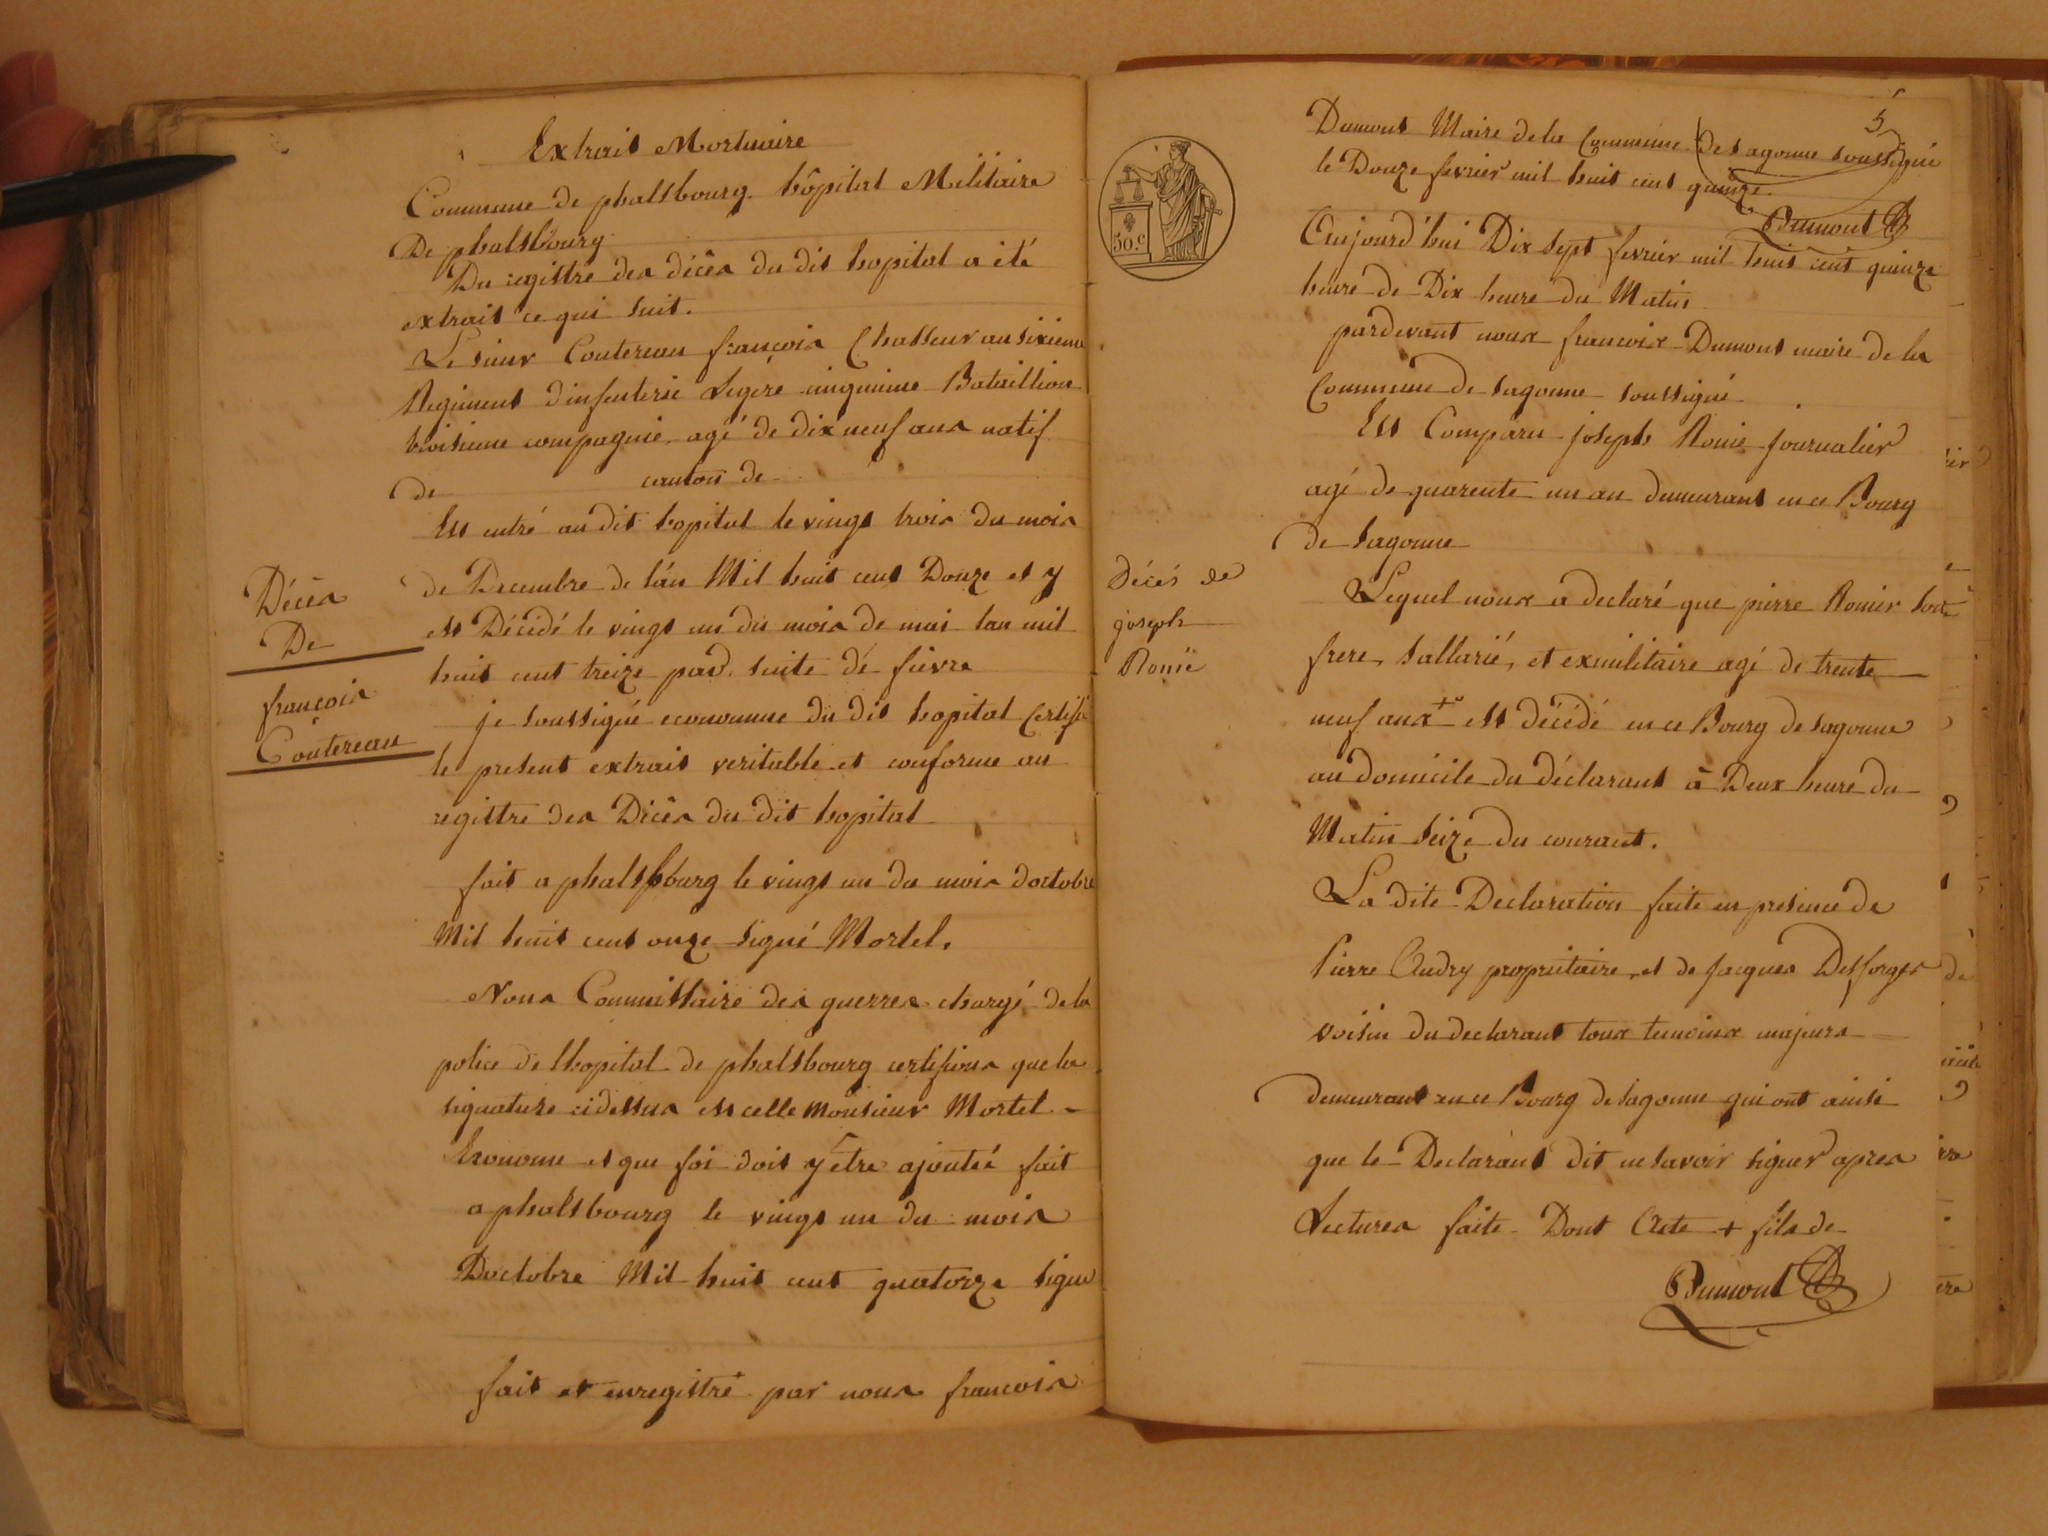 Extrait Mortuaire
Commune de phalsbourg. hôpital Militaire
De phalsbourg
Du regittre des décês du dit hopital a été
extrait ce qui suit.
Le sieur Coutereau françois Chasseur au sixieme
Regiment dinfenterie Legére cinquieme Bataillion
troisieme compagnie agé de dix neuf ans natif
de canton de
Est entré au dit hopital le vingt trois du mois
de Decembre de l'án Mil huit cent Douze et y
est Décédé le vingt un du mois de mai lan mil
huit cent treize par suite dé fievre
je soussigné econonme du dit hopital Certifie
le present extrait veritable et conforme au
regittre des Décês du dit hopital
fait a phalsbourg le vingt un du mois doctobre
Mil huit cent onze signé Mortel.
Nous Commissaire des guerres chargé de la
police de lhopital de phalsbourg certifions que la
signature cidessus est celle monsieur Mortel
Econome et que foi doit y être ajoutée fait
a phalsbourg le vingt un du mois
Doctobre Mil huit cent quatorze signé
fait et enregittré par nous francois
Décês
De
françois
Coutereau
5
Dumont Maire de la Commune de sagonne soussigné
le Douze fevrier mil huit cent quinze.
Dumont
50.c
Aujourd'hui Dix sept fevrier mil huit cent quinze
heure de Dix heure du Matin
pardevant nous francois Dumont maire de la
Commune de sagonne soussigné
Est Comparu joseph Ronie journalier
agé de quarente un an demeurant en ce Bourg
de sagonne
Lequel nous a declaré que pierre Ronier son
frere, sallarié, et exmilitaire agé de trente
neuf ans + est décédé en ce Bourg de sagonne
au domicile du déclarant à Deux heure du
Matin seize du courant.
La dite Declaration faite en presence de
Pierre Audry proprietaire et de jacques Desforges
voisin du declarant tous temoins majeurs
demeurant en ce Bourg de sagonne qui ont ainsi
que le Declarant dit ne savoir signer apres
Lectures faite Dont Acte + fils de
Dumont
Décés de
joseph
Ronie